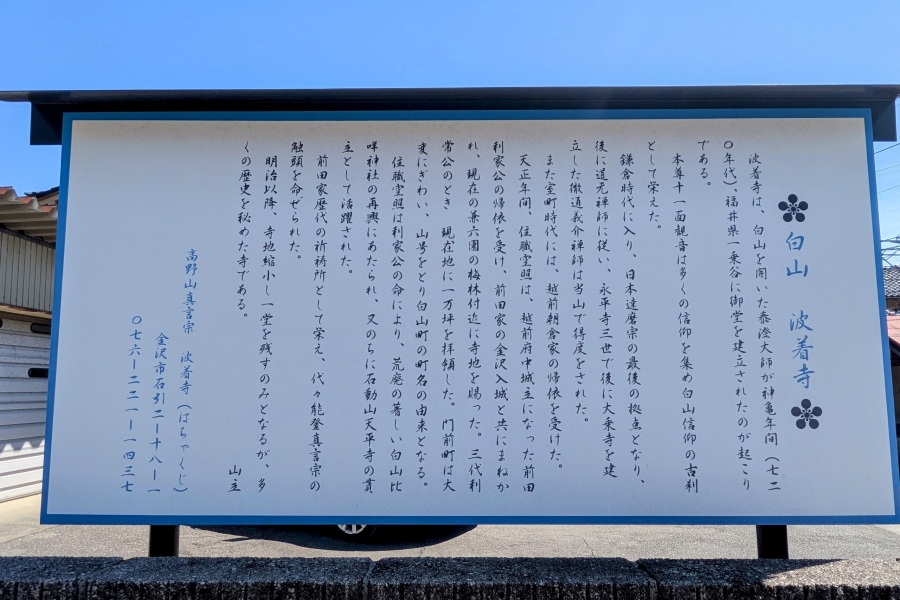 白山 波着寺
波着寺は、白山を開いた泰澄大師が神亀年間（七二
〇年代）、福井県一乗谷に御堂を建立されたのが起こり
である。
本尊十一面観音は多くの信仰を集め白山信仰の古刹
として栄えた。
鎌倉時代に入り、日本達磨宗の最後の拠点となり、
後に道元禅師に従い、永平寺三世で後に大乗寺を建
立した徹通義介禅師は当山で得度をされた。
また室町時代には、越前朝倉家の帰依を受けた。
天正年間、住職空照は、越前府中城主になった前田
利家公の帰依を受け、前田家の金沢入城と共にまねか
れ、現在の兼六園の梅林付近に寺地を賜った。三代利
常公のとき 現在地に一万坪を拝領した。門前町は大
変にぎわい、山号をとり白山町の町名の由来となる。
住職空照は利家公の命により、荒廃の著しい白山比
咩神社の再興にあたられ、又のちに石動山天平寺の貫
主として活躍された。
前田家歴代の祈祷所として栄え、代々能登真言宗の
触頭を命ぜられた。
明治以降、寺地縮小し一堂を残すのみとなるが、多
くの歴史を秘めた寺である。
山主
高野山真言宗 波着寺（はちゃくじ）
金沢市石引二ー十八ー一
〇七六ー二二一ー一四三七